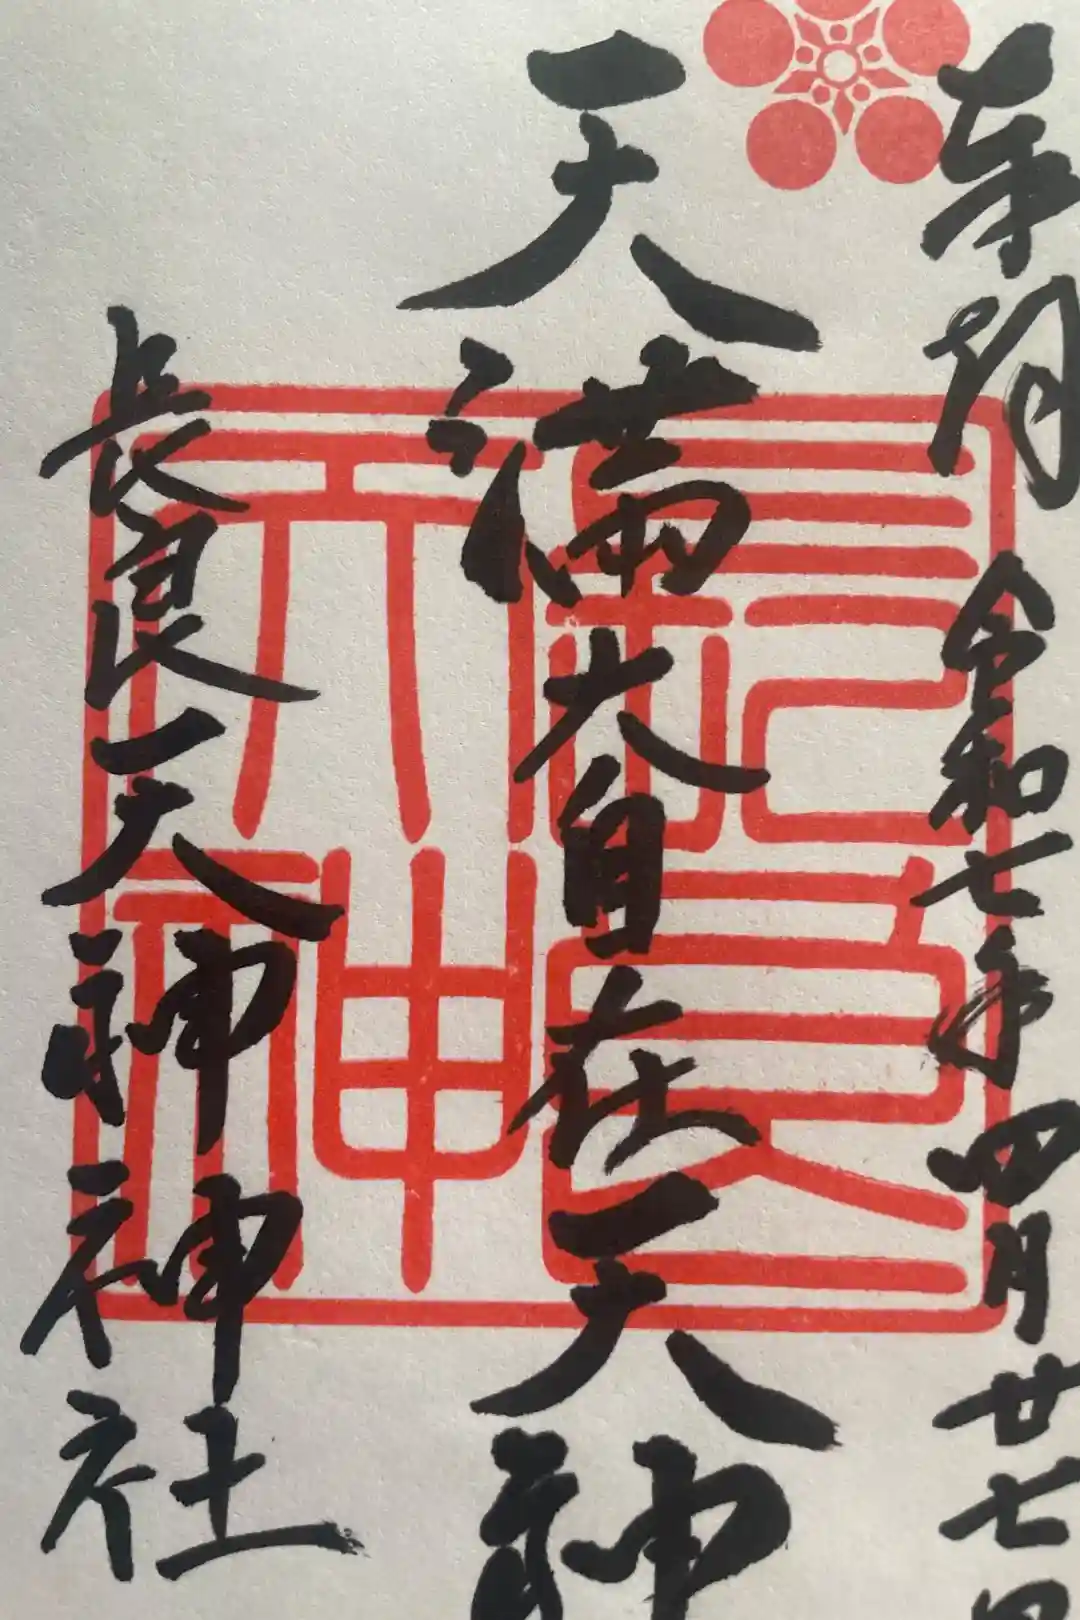 奉拝 令和七年四月廿七日
天満大自在天神
長良天神神社
長良
天神